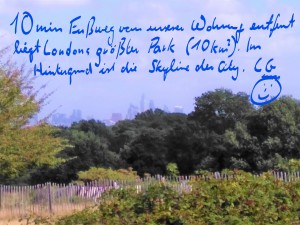 10 min Fußweg von unserer Wohnung entfernt
liegt Londons größter Park (10 km²). Im
Hintergrund ist die Skyline der City. LG